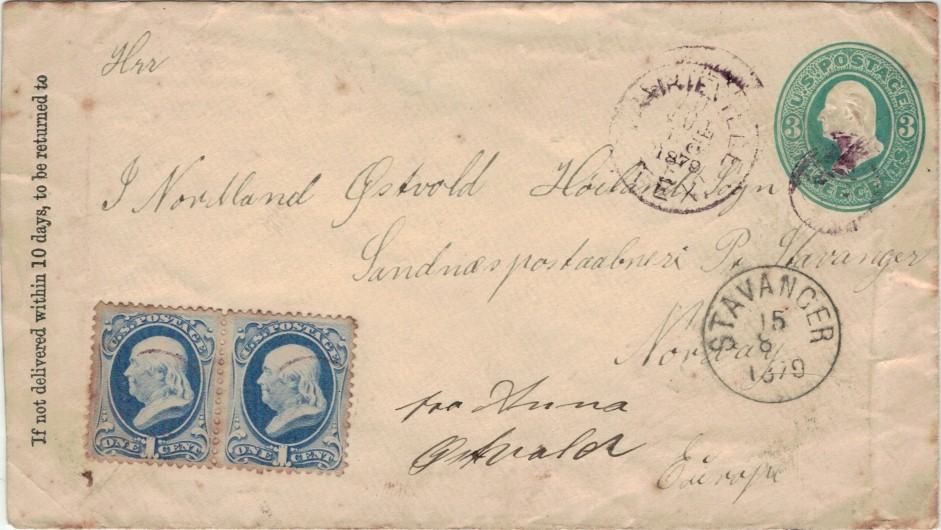 If not delivered within 10 days, to be returned to
Hrr
I Nordland Østvold Høiland Sogn
Sandnæs postaabneri Pr Stavanger
Norway
Europa
fra Anna
Østvold
1879
TEX
U.S. POSTAGE
3 3
STAVANGER
15
8
1879
U.S. POSTAGE
ONE 1 CENT
U.S. POSTAGE
ONE 1 CENT